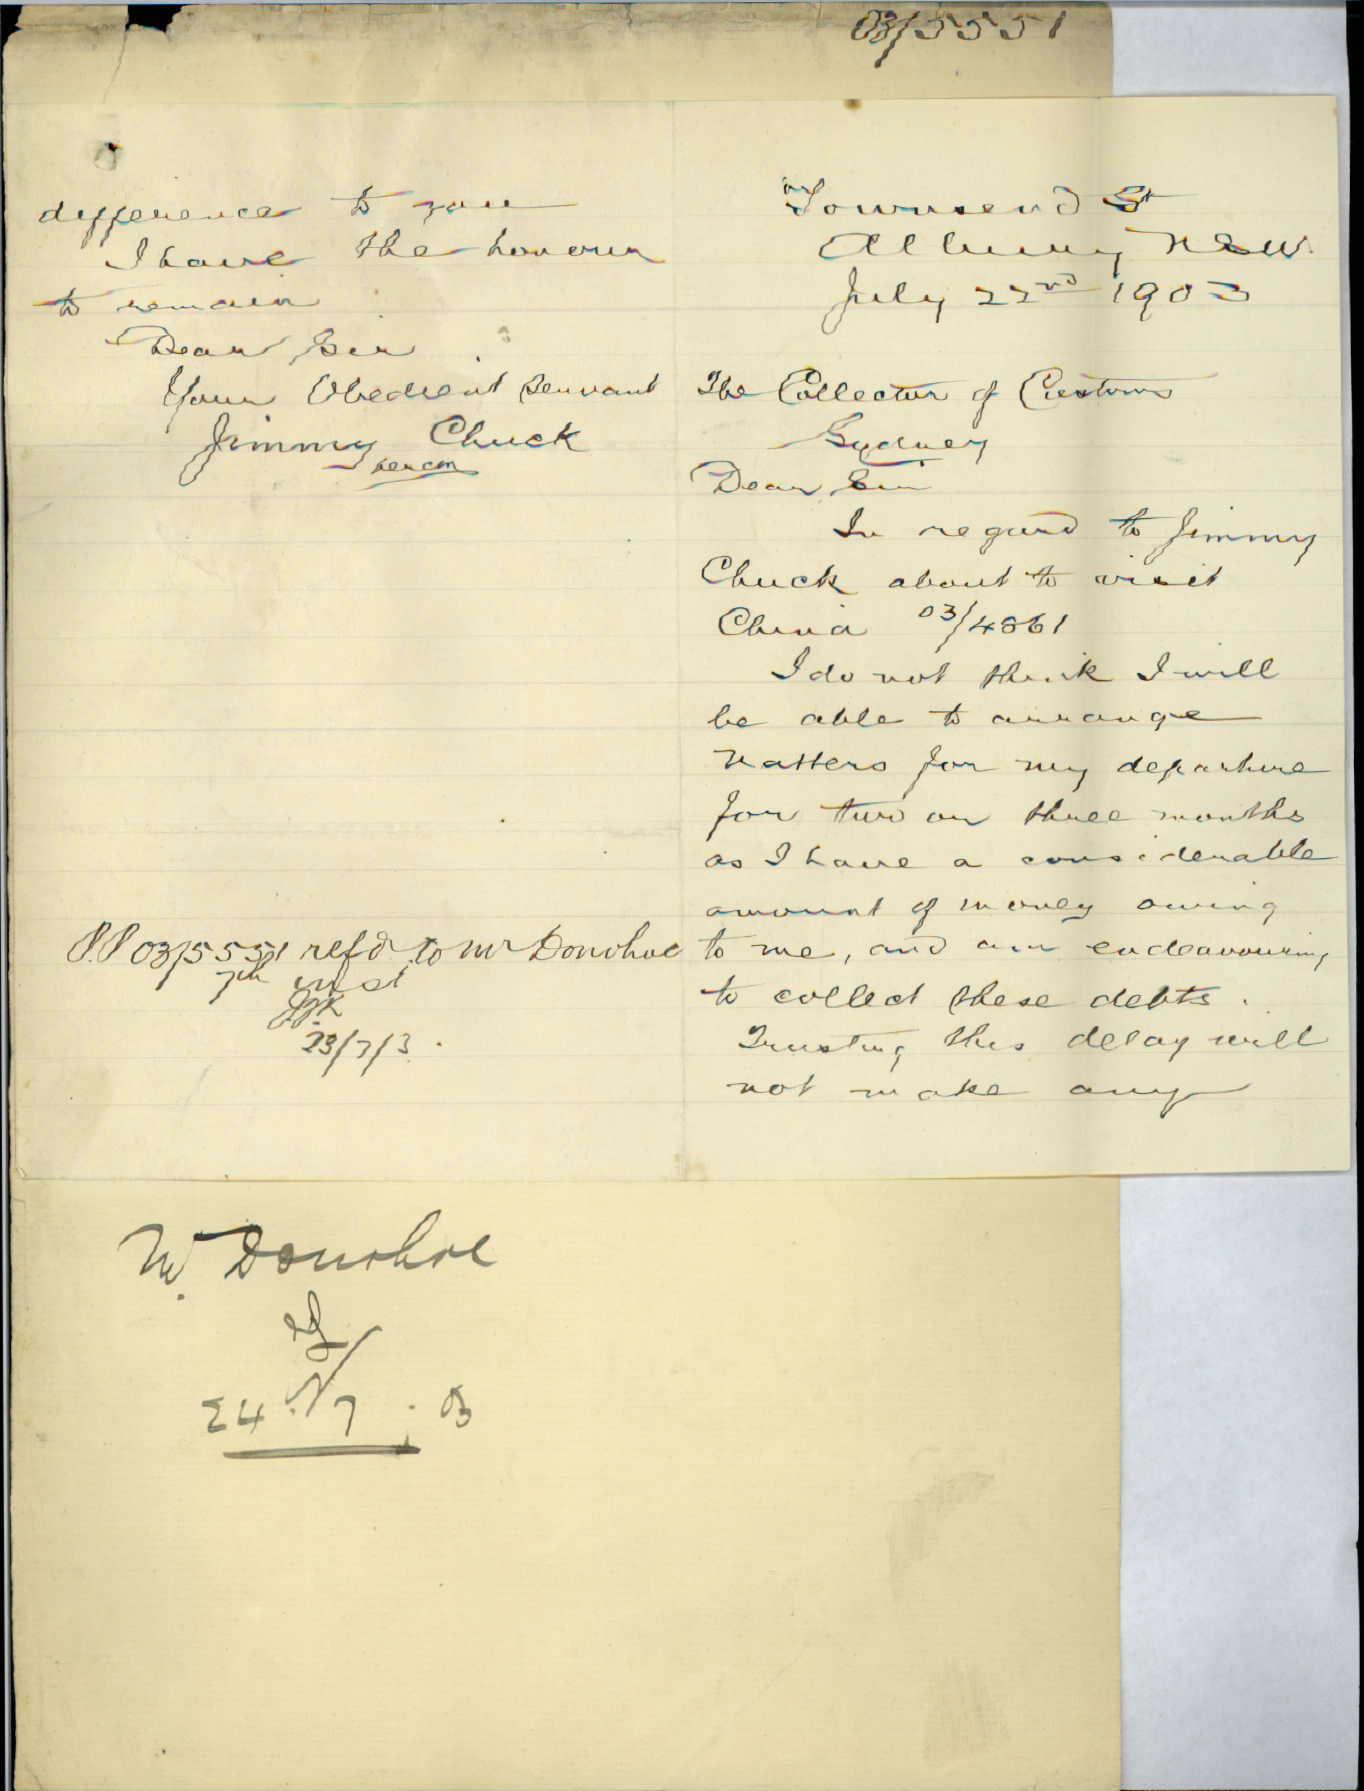 03/5551
Townsend St
Albury NSW.
July 22nd 1903
The Collector of Customs
Sydney
Dear Sir
In regard to Jimmy
Chuck about to visit
China 03/4861
I do not think I will
be able to arrange
matters for my departure
for two or three months
as I have a considerable
amount of money owing
to me, and am endeavouring
to collect these debts.
Trusting this delay will
not make any
difference to you
I have the honour
to remain
Dear Sir
Your Obedient Servant
Jimmy Chuck
P.P 03/5551 refd to Mr Donohoe
7th inst
23/7/3.
Mr Donohoe
24/7.03